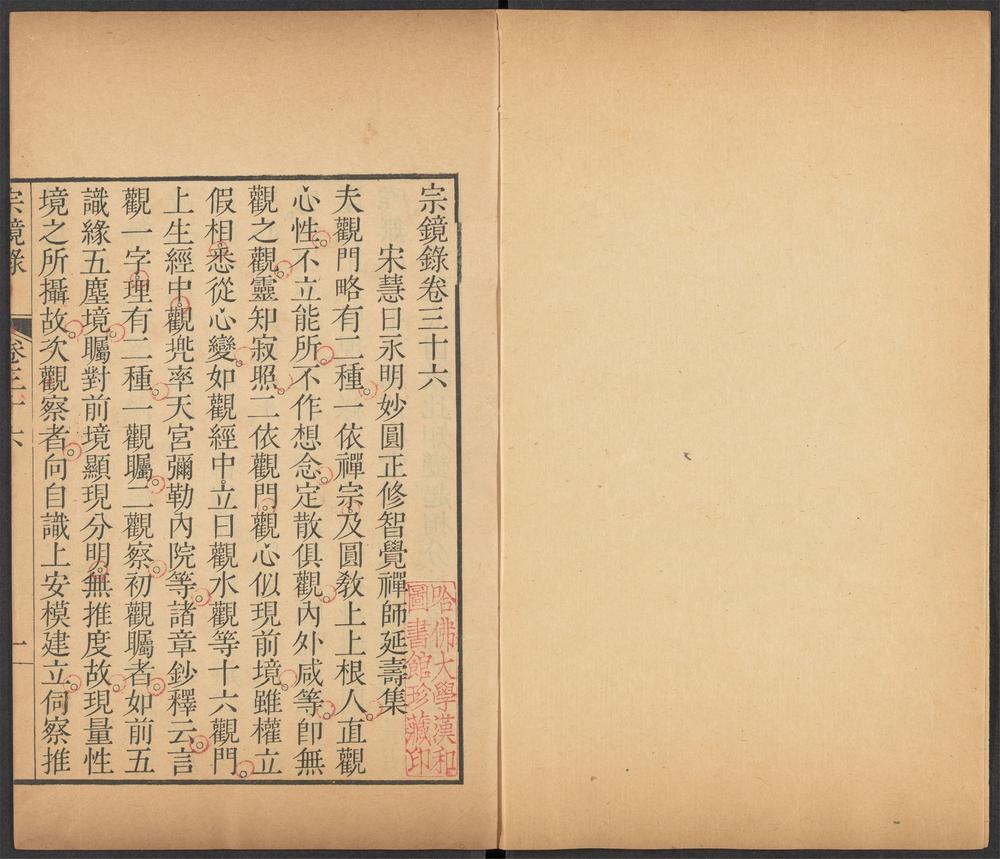 宗鏡錄卷三十六
宋慧日永明妙圓正修智覺禪師延壽集
哈佛大學漢和
圖書館珍藏印
夫觀門略有二種一依禪宗及圓敎上上根人直觀
心性不立能所不作想念定散俱觀內外咸等卽無
觀之觀靈知寂照二依觀門觀心似現前境雖權立
假相悉從心變如觀經中立日觀水觀等十六觀門
上生經中觀兠率天宮彌勒內院等諸章鈔釋云言
觀一字理有二種一觀矚二觀察初觀矚者如前五
識緣五塵境矚對前境顯現分明無推度故現量性
境之所攝故次觀察者向自識上安模建立伺察推
宗鏡錄 卷三十六 一